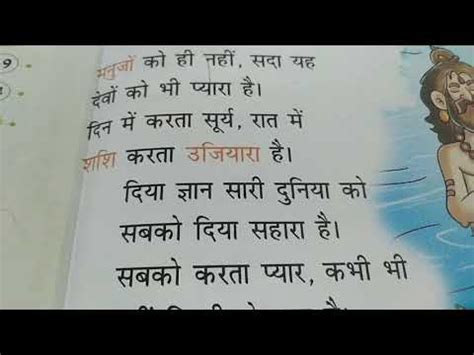 मनुजों को ही नहीं, सदा यह
देवों को भी प्यारा है।
दिन में करता सूर्य, रात में
शशि करता उजियारा है।
दिया ज्ञान सारी दुनिया को
सबको दिया सहारा है।
सबको करता प्यार, कभी भी